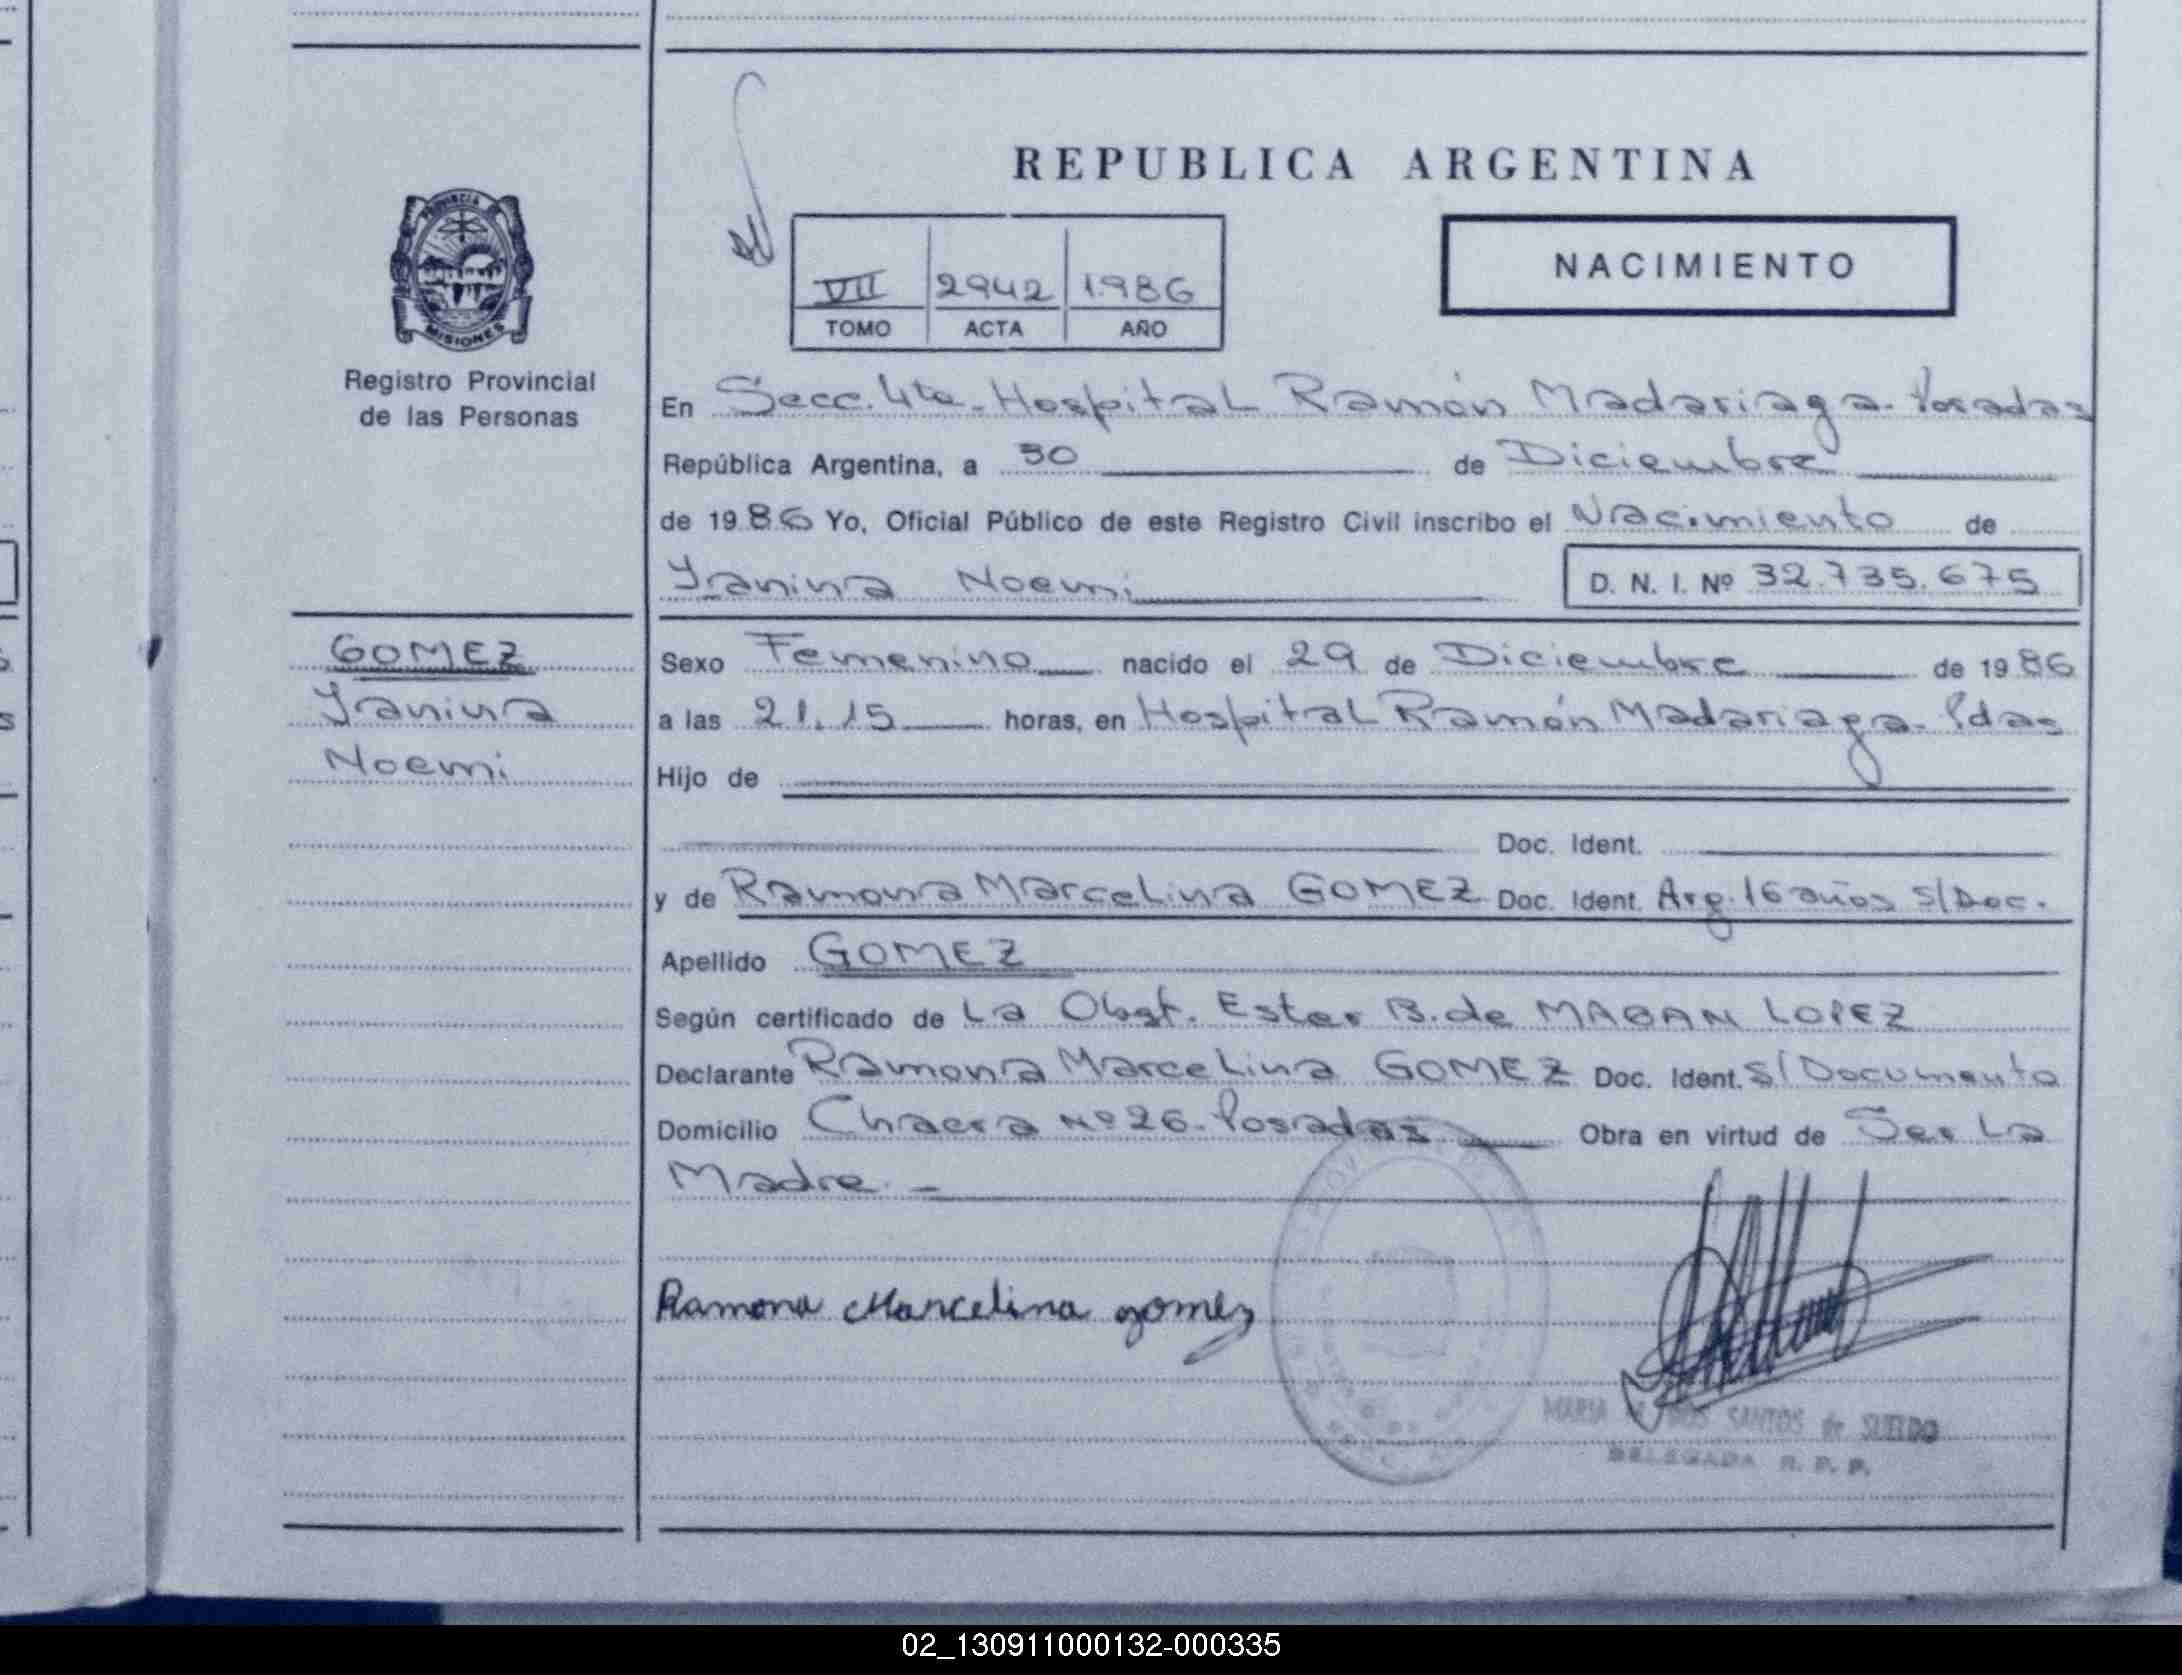 REPUBLICA ARGENTINA
NACIMIENTO
VII 2942 1986
TOMO ACTA AÑO
PROVINCIA DE
MISIONES
Registro Provincial
de las Personas
En Secc. 4ta. Hospital Ramón Madariaga. Posadas
República Argentina, a 30 de Diciembre
de 1986 Yo, Oficial Público de este Registro Civil inscribo el Nacimiento de
Yanina Noemi D. N. I. Nº 32.735.675
GOMEZ
Yanina
Noemi
Sexo Femenino nacido el 29 de Diciembre de 1986
a las 21.15 horas, en Hospital Ramón Madariaga. Pdas
Hijo de
Doc. Ident.
y de Ramona Marcelina GOMEZ Doc. Ident. Arg. 16 años S/Doc.
Apellido GOMEZ
Según certificado de La Obst. Ester B. de MABAN LOPEZ
Declarante Ramona Marcelina GOMEZ Doc. Ident. S/Documento
Domicilio Chacra Nº 26. Posadas Obra en virtud de Ser La
Madre. -
Ramona Marcelina gomez
MARIA DOS SANTOS de SUELDO
DELEGADA R. P. P.
02_130911000132-000335